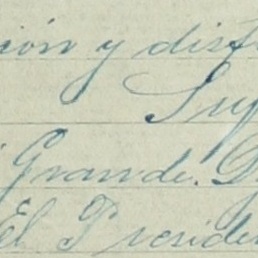 ción y disf
Suf
Grande. D
El Presiden